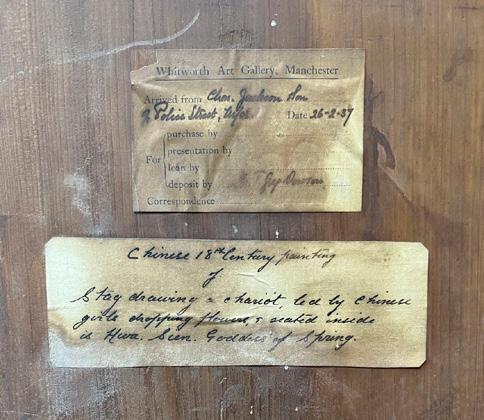 Whitworth Art Gallery, Manchester
Arrived from Chas. Jackson Son
7 Police Street, M/cr. Date 26-2-37
purchase by
presentation by
For
loan by
deposit by
Correspondence
Chinese 18th Century painting
of
Stag drawing a chariot led by Chinese
girls dropping flowers, & seated inside
is Hwa. Sien. Goddess of Spring.